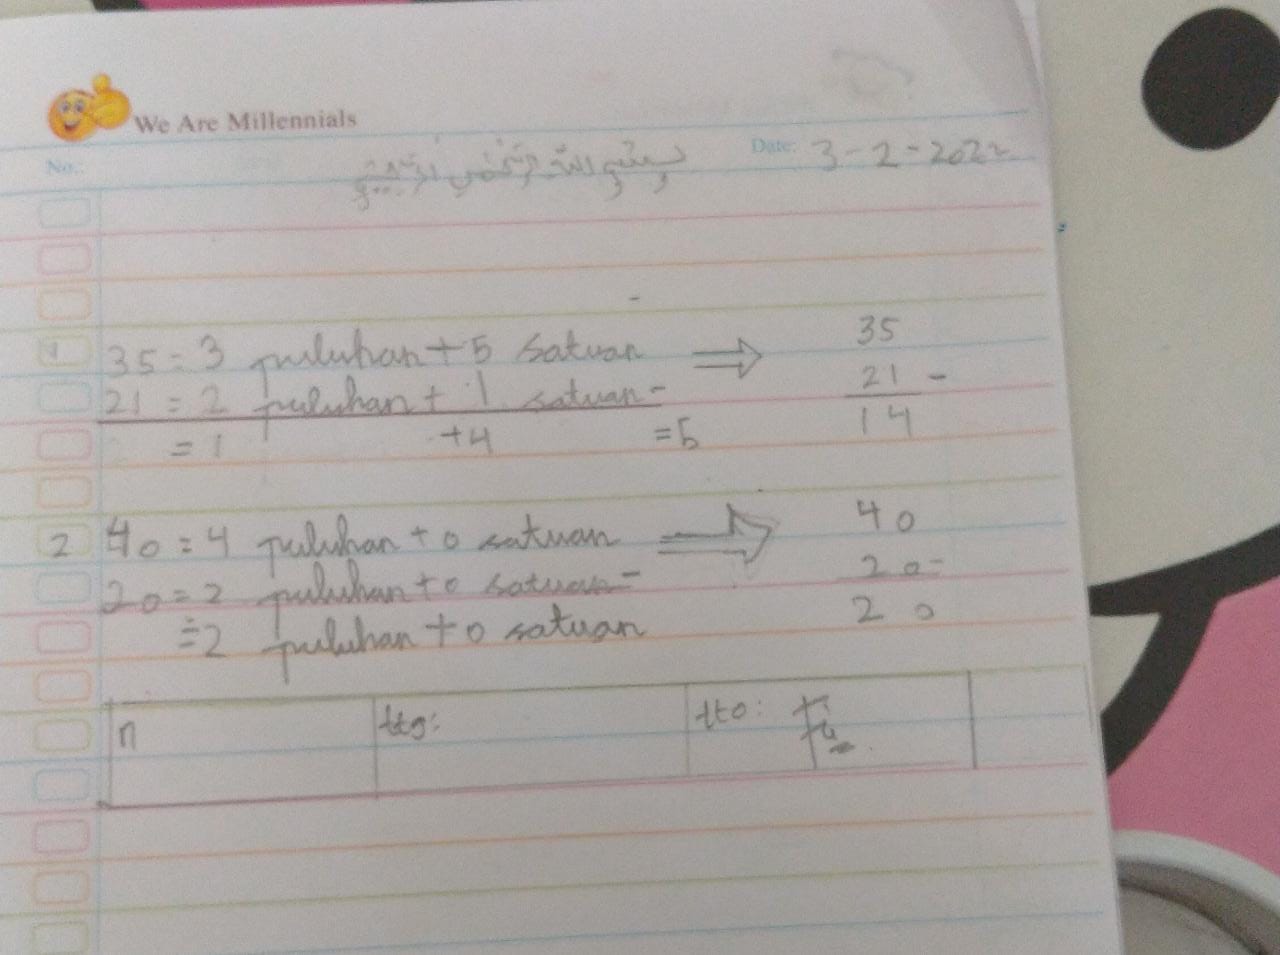 We Are Millennials
No.:
Date: 3-2-2022
1 35 = 3 puluhan + 5 satuan ⇒ 35
21 = 2 puluhan + 1 satuan - 21 -
= 1 +4 = 5 14
2 40 = 4 puluhan + 0 satuan ⇒ 40
20 = 2 puluhan + 0 satuan - 20 -
= 2 puluhan + 0 satuan 20
n ttg: tto: